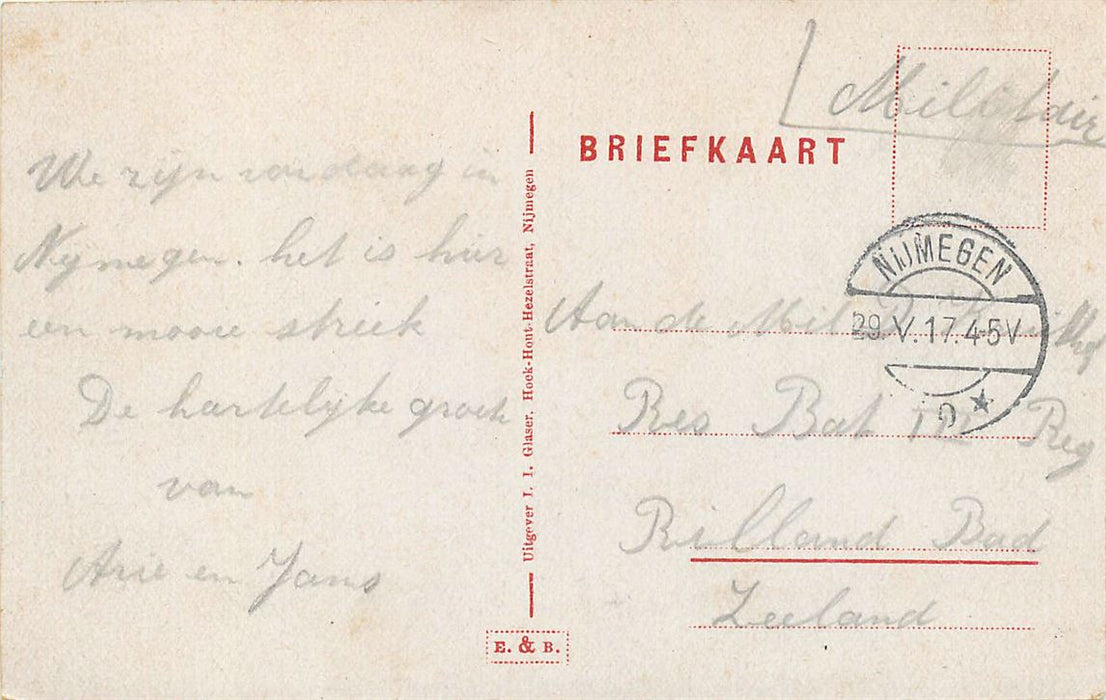 We zijn vandaag in
Nymegen. het is hier
een mooie streek
De hartelyke groete
van
Arie en Jans
Uitgever I. I. Glaser, Hoek-Hout-Hezelstraat, Nijmegen
E. & B.
BRIEFKAART
Militair
NIJMEGEN
29.V.17.4-5V
Aan de Mil
Res Bat III Reg
Rilland Bad
Zeeland